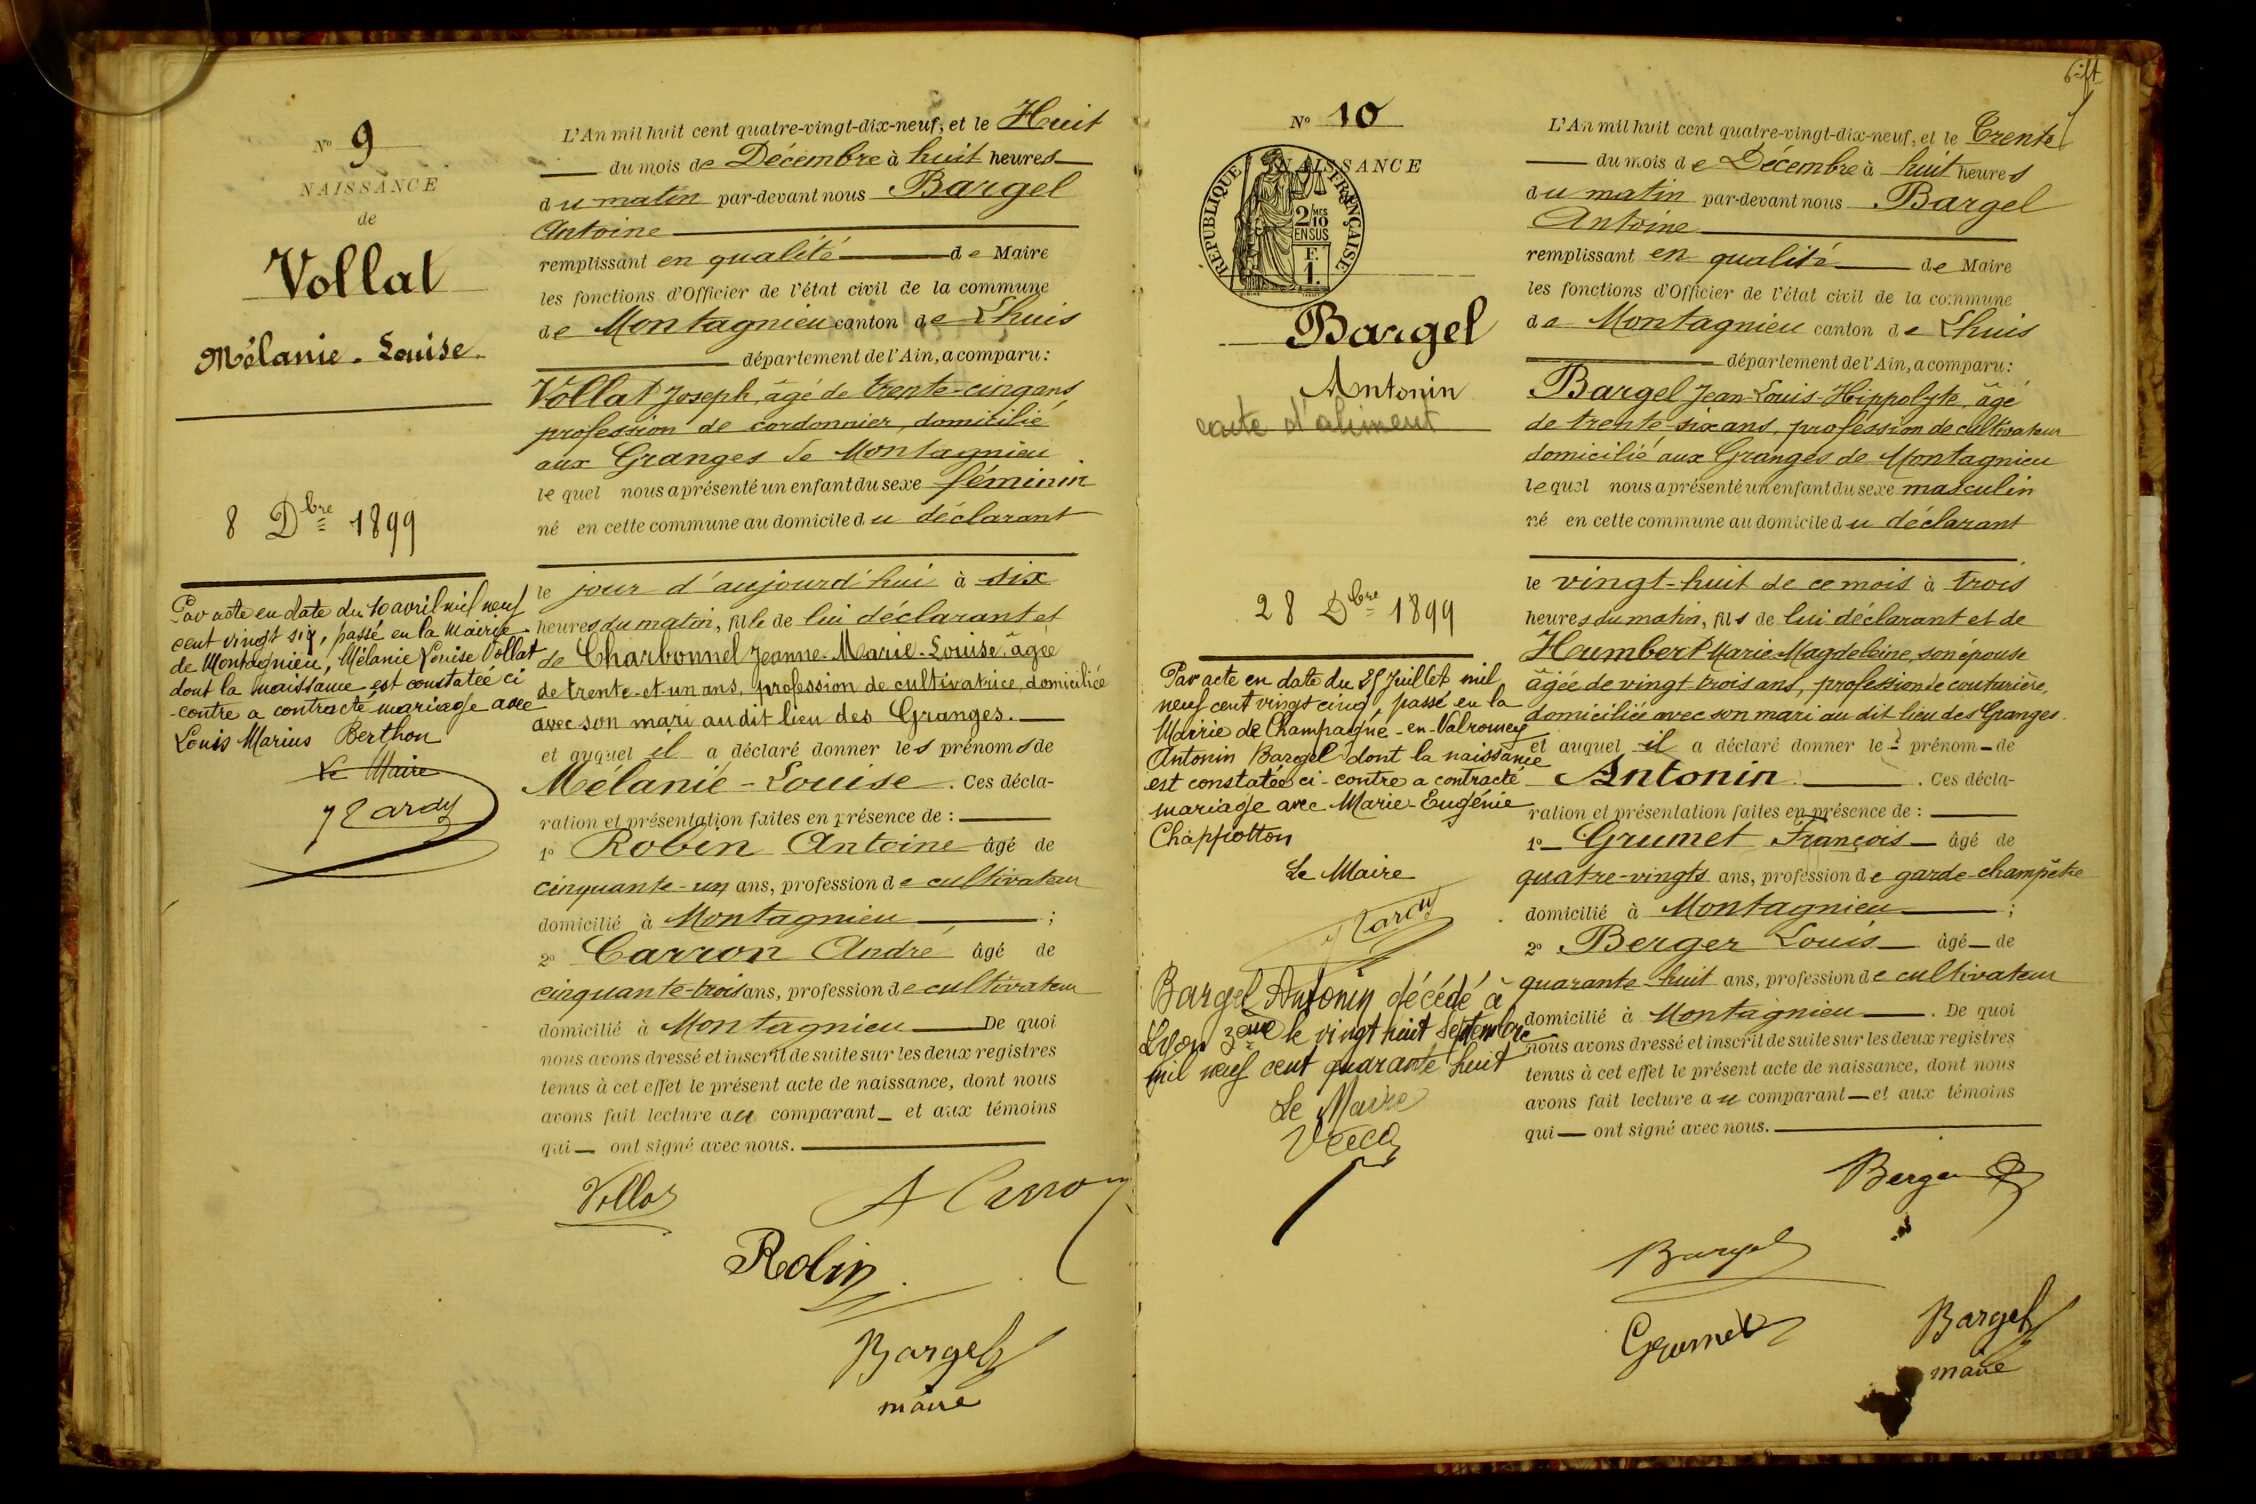 Nº 9
NAISSANCE
de
Vollat
Mélanie - Louise
8 Dbre 1899
Par acte en date du 10 avril mil neuf
cent vingt six, passé en la Mairie
de Montagnieu, Mélanie Louise Vollat
dont la naissance est constatée ci
-contre a contracté mariage avec
Louis Marius Berthon
Le Maire
L'An mil huit cent quatre-vingt-dix-neuf, et le Huit
du mois de Décembre à huit heures
du matin par-devant nous Bargel
Antoine
remplissant en qualité de Maire
les fonctions d'Officier de l'état civil de la commune
de Montagnieu canton de Lhuis
département de l'Ain, a comparu :
Vollat Joseph, âgé de trente-cinq ans,
profession de cordonnier, domicilié
aux Granges de Montagnieu
lequel nous a présenté un enfant du sexe féminin
né en cette commune au domicile du déclarant
le jour d'aujourd'hui à six
heures du matin, fille de lui déclarant et
de Charbonnel Jeanne-Marie-Louise, âgée
de trente-et-un ans, profession de cultivatrice, domiciliée
avec son mari au dit lieu des Granges.
et auquel il a déclaré donner les prénoms de
Mélanie - Louise. Ces décla-
ration et présentation faites en présence de :
1º Robin Antoine âgé de
cinquante-un ans, profession de cultivateur
domicilié à Montagnieu ;
2º Carron André, âgé de
cinquante-trois ans, profession de cultivateur
domicilié à Montagnieu De quoi
nous avons dressé et inscrit de suite sur les deux registres
tenus à cet effet le présent acte de naissance, dont nous
avons fait lecture au comparant et aux témoins
qui ont signé avec nous.
Vollat
A Carron
Robin
Bargel
maire
Nº 10
NAISSANCE
REPUBLIQUE FRANÇAISE
2 MES 10
EN SUS
F.
1.
Bargel
Antonin
carte d'aliment
28 Dbre 1899
Par acte en date du 25 Juillet mil
neuf cent vingt cinq, passé en la
Mairie de Champagne-en-Valromey
Antonin Bargel dont la naissance
est constatée ci-contre a contracté
mariage avec Marie-Eugénie
Chappotton
Le Maire
Bargel Antonin décédé à
Lyon 3eme le vingt huit Septembre
mil neuf cent quarante huit
Le Maire
L'An mil huit cent quatre-vingt-dix-neuf, et le Trente
du mois de Décembre à huit heures
du matin par-devant nous Bargel
Antoine
remplissant en qualité de Maire
les fonctions d'Officier de l'état civil de la commune
de Montagnieu canton de Lhuis
département de l'Ain, a comparu :
Bargel Jean-Louis-Hippolyte, âgé
de trente-six ans, profession de cultivateur
domicilié aux Granges de Montagnieu
lequel nous a présenté un enfant du sexe masculin
né en cette commune au domicile du déclarant
le vingt-huit de ce mois à trois
heures du matin, fils de lui déclarant et de
Humbert Marie-Magdeleine, son épouse
âgée de vingt-trois ans, profession de couturière,
domiciliée avec son mari au dit lieu des Granges.
et auquel il a déclaré donner le prénom de
Antonin. Ces décla-
ration et présentation faites en présence de :
1º Grumet François âgé de
quatre-vingts ans, profession de garde-champêtre
domicilié à Montagnieu ;
2º Berger Louis âgé de
quarante-huit ans, profession de cultivateur
domicilié à Montagnieu. De quoi
nous avons dressé et inscrit de suite sur les deux registres
tenus à cet effet le présent acte de naissance, dont nous
avons fait lecture au comparant et aux témoins
qui ont signé avec nous.
Berger
Bargel
Grumet
Bargel
maire